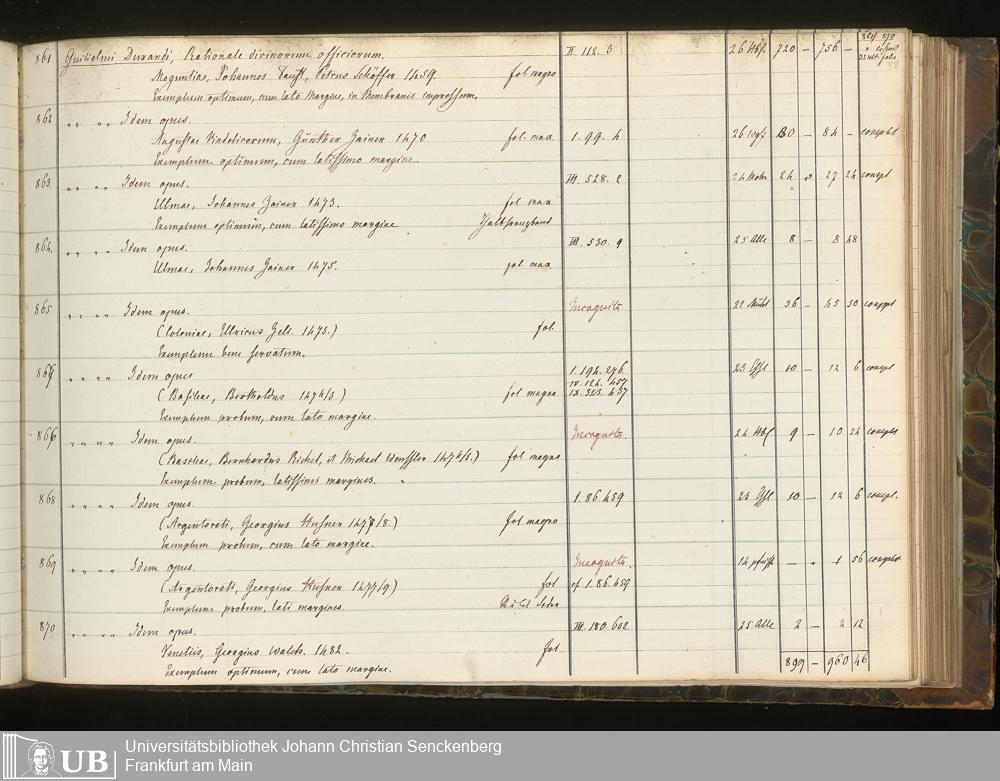 861 Guilielmi Durandi, Rationale divinorum officiorum. II. 112. 3 720 – 756 –
Moguntiae, Johannes Faust, Petrus Schöffer 1459. fol. magno
Exemplum optimum, cum lato margine, in Membranis impressum.
862 " " " " Idem opus.
Augustae Vindelicorum, Günther Zainer 1470 fol. max. 1. 99. 4 80 – 84 – complet
Exemplum optimum, cum latissimo margine.
863. " " " " Idem opus. III. 528. 2 24 27 24 compl
Ulmae, Johannes Zainer 1473. fol max
Exemplum optimum, cum latissimo margine Halbfranzband
864. " " " " Idem opus. III. 530. 9 25 Alle 8 – 8 48
Ulmae, Johannes Zainer 1475. fol. max
865 " " " " Idem opus. Incognita 36 – 45 50 complet
(Coloniae, Ulricus Zell. 1475.) fol.
Exemplum bene servatum.
" " " " Idem opus 1. 194. 276 10 – 12 6 compl
(Basileae, Bertholdus 1474/5.) fol magno IV. 124. 457
Exemplum probum, cum lato margine. IX. 323. 457
866 " " " " Idem opus. Incognita. 9 – 10 24 complet
(Basileae, Bernhardus Richel, et Michael Wenssler 1474/5.) fol magno
Exemplum probum, latissimis margines.
868 " " " " Idem opus. 1. 86. 459 10 – 12 6 compl.
(Argentorati, Georgius Husner 1477/8.) fol magno
Exemplum probum, cum lato margine.
869 " " " " Idem opus. Incognita. – 1 56 complet
(Argentorati, Georgius Husner 1477/9) fol cf. 1. 86. 459
Exemplum probum, lati margines.
870 " " " " Idem opus. III. 180. 602 25 Alle 2 – 2 12
Venetiis, Georgius Walch. 1482. fol.
Exemplum optimum, cum lato margine. 899 – 960 46
UB Universitätsbibliothek Johann Christian Senckenberg
Frankfurt am Main